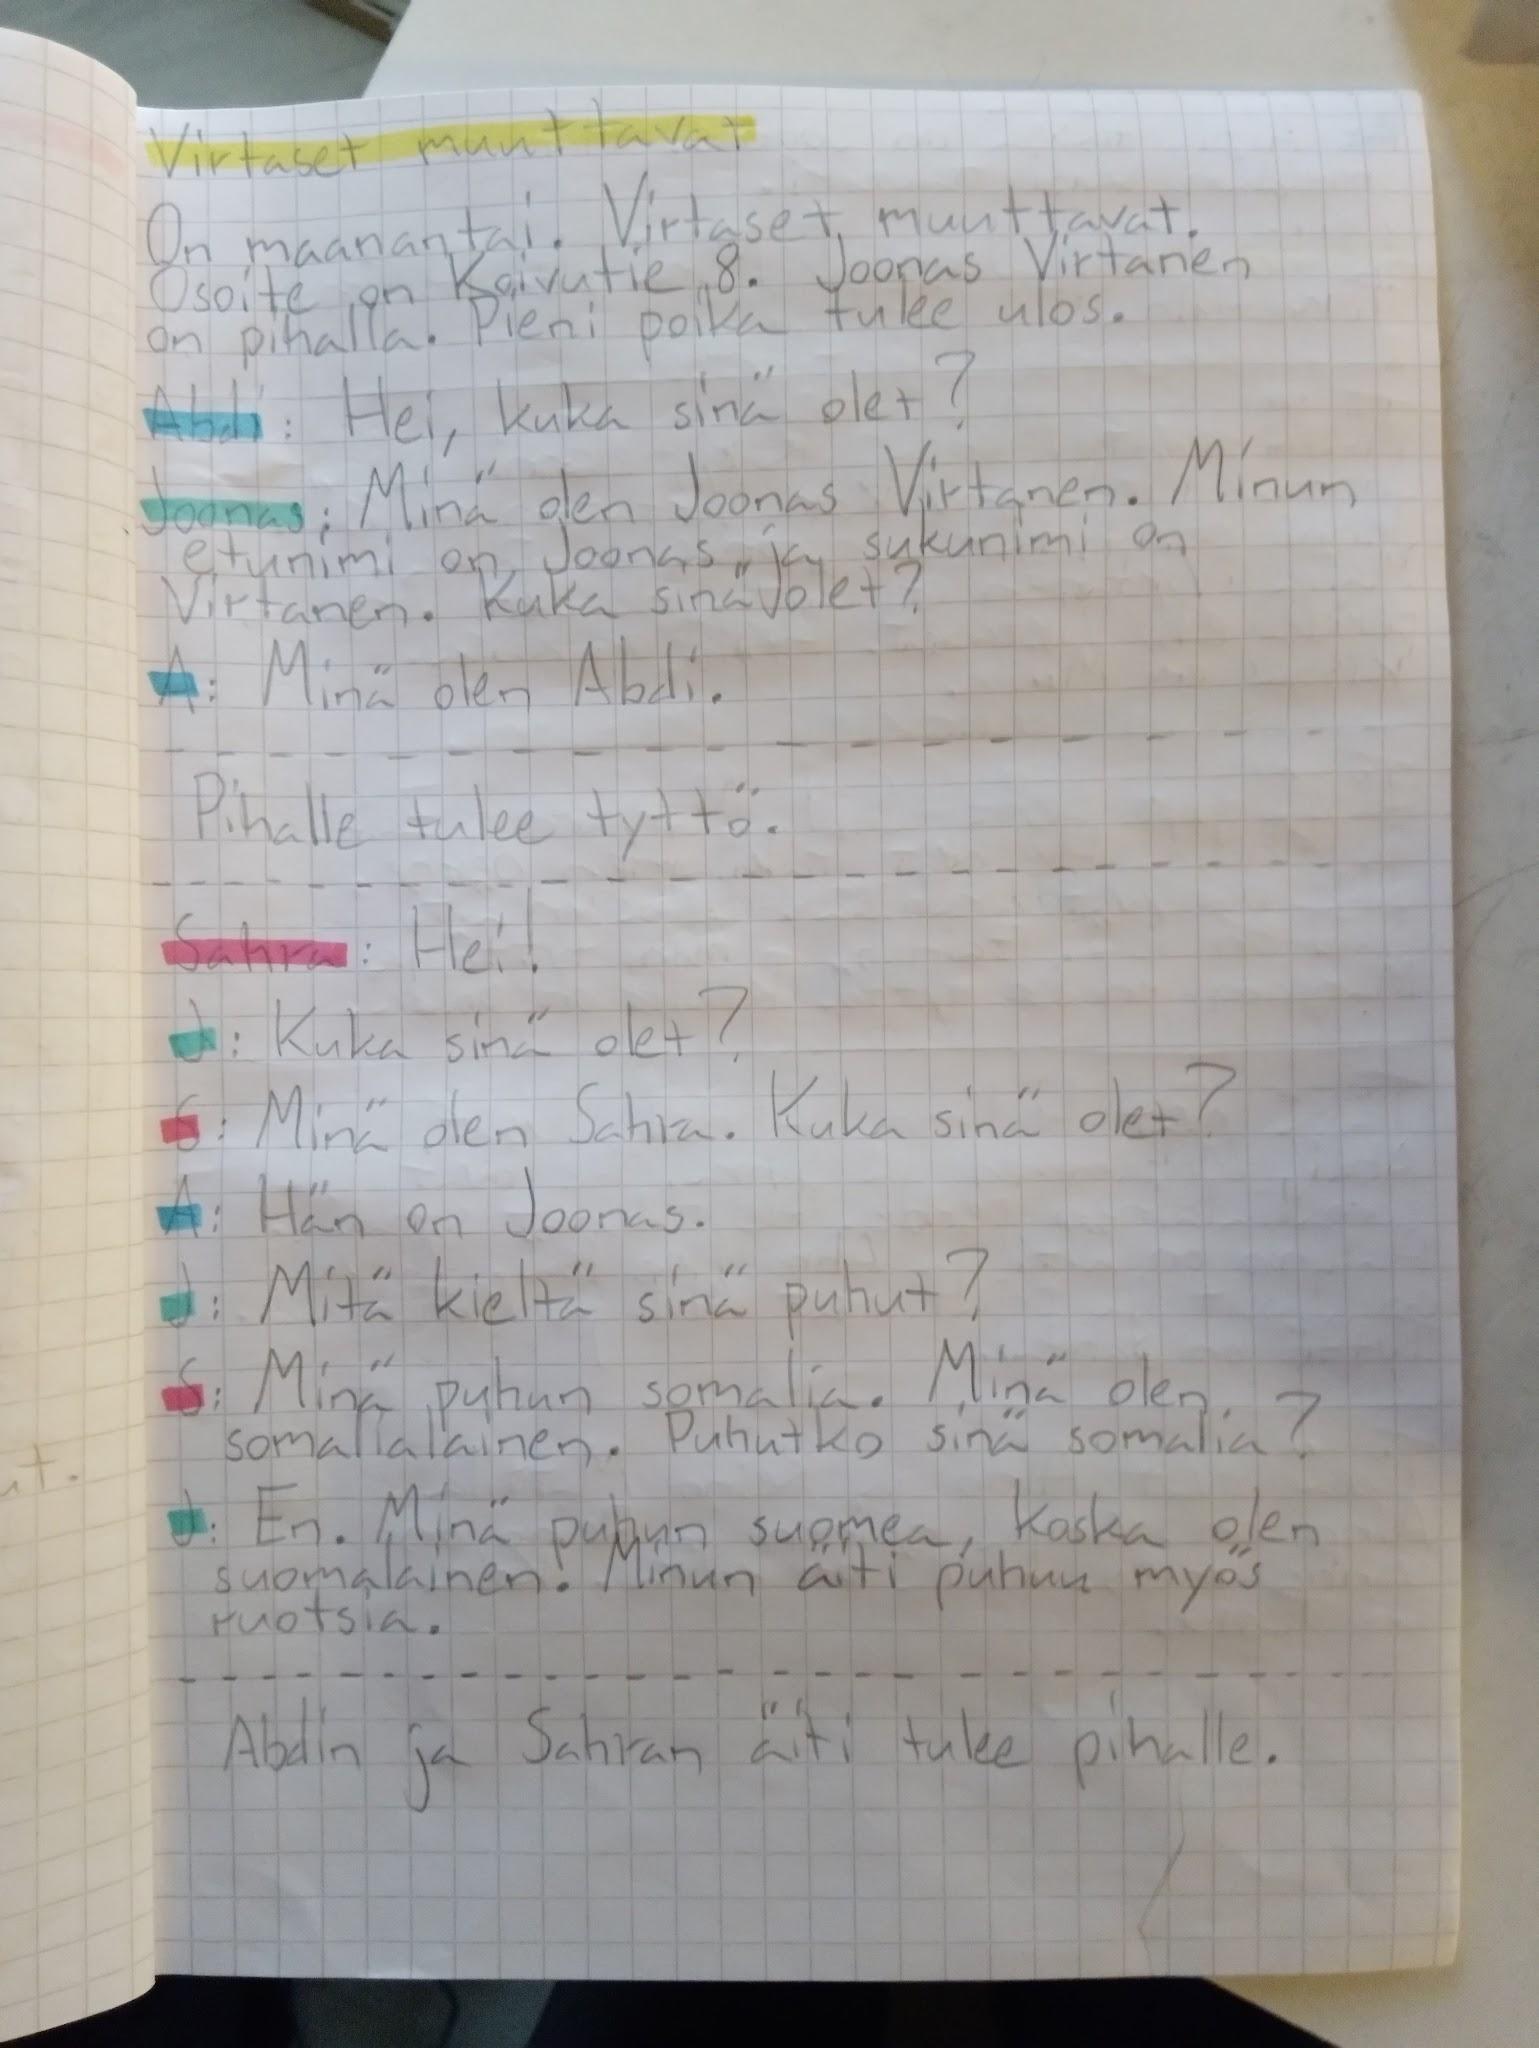 Virtaset muuttavat
On maanantai. Virtaset muuttavat.
Osoite on Koivutie 8. Joonas Virtanen
on pihalla. Pieni poika tulee ulos.
Abdi: Hei, kuka sinä olet?
Joonas: Minä olen Joonas Virtanen. Minun
etunimi on Joonas ja sukunimi on
Virtanen. Kuka sinä olet?
A: Minä olen Abdi.
Pihalle tulee tyttö.
Sahra: Hei!
J: Kuka sinä olet?
S: Minä olen Sahra. Kuka sinä olet?
A: Hän on Joonas.
J: Mitä kieltä sinä puhut?
S: Minä puhun somalia. Minä olen
somalialainen. Puhutko sinä somalia?
J: En. Minä puhun suomea, koska olen
suomalainen. Minun äiti puhuu myös
ruotsia.
Abdin ja Sahran äiti tulee pihalle.
ut.